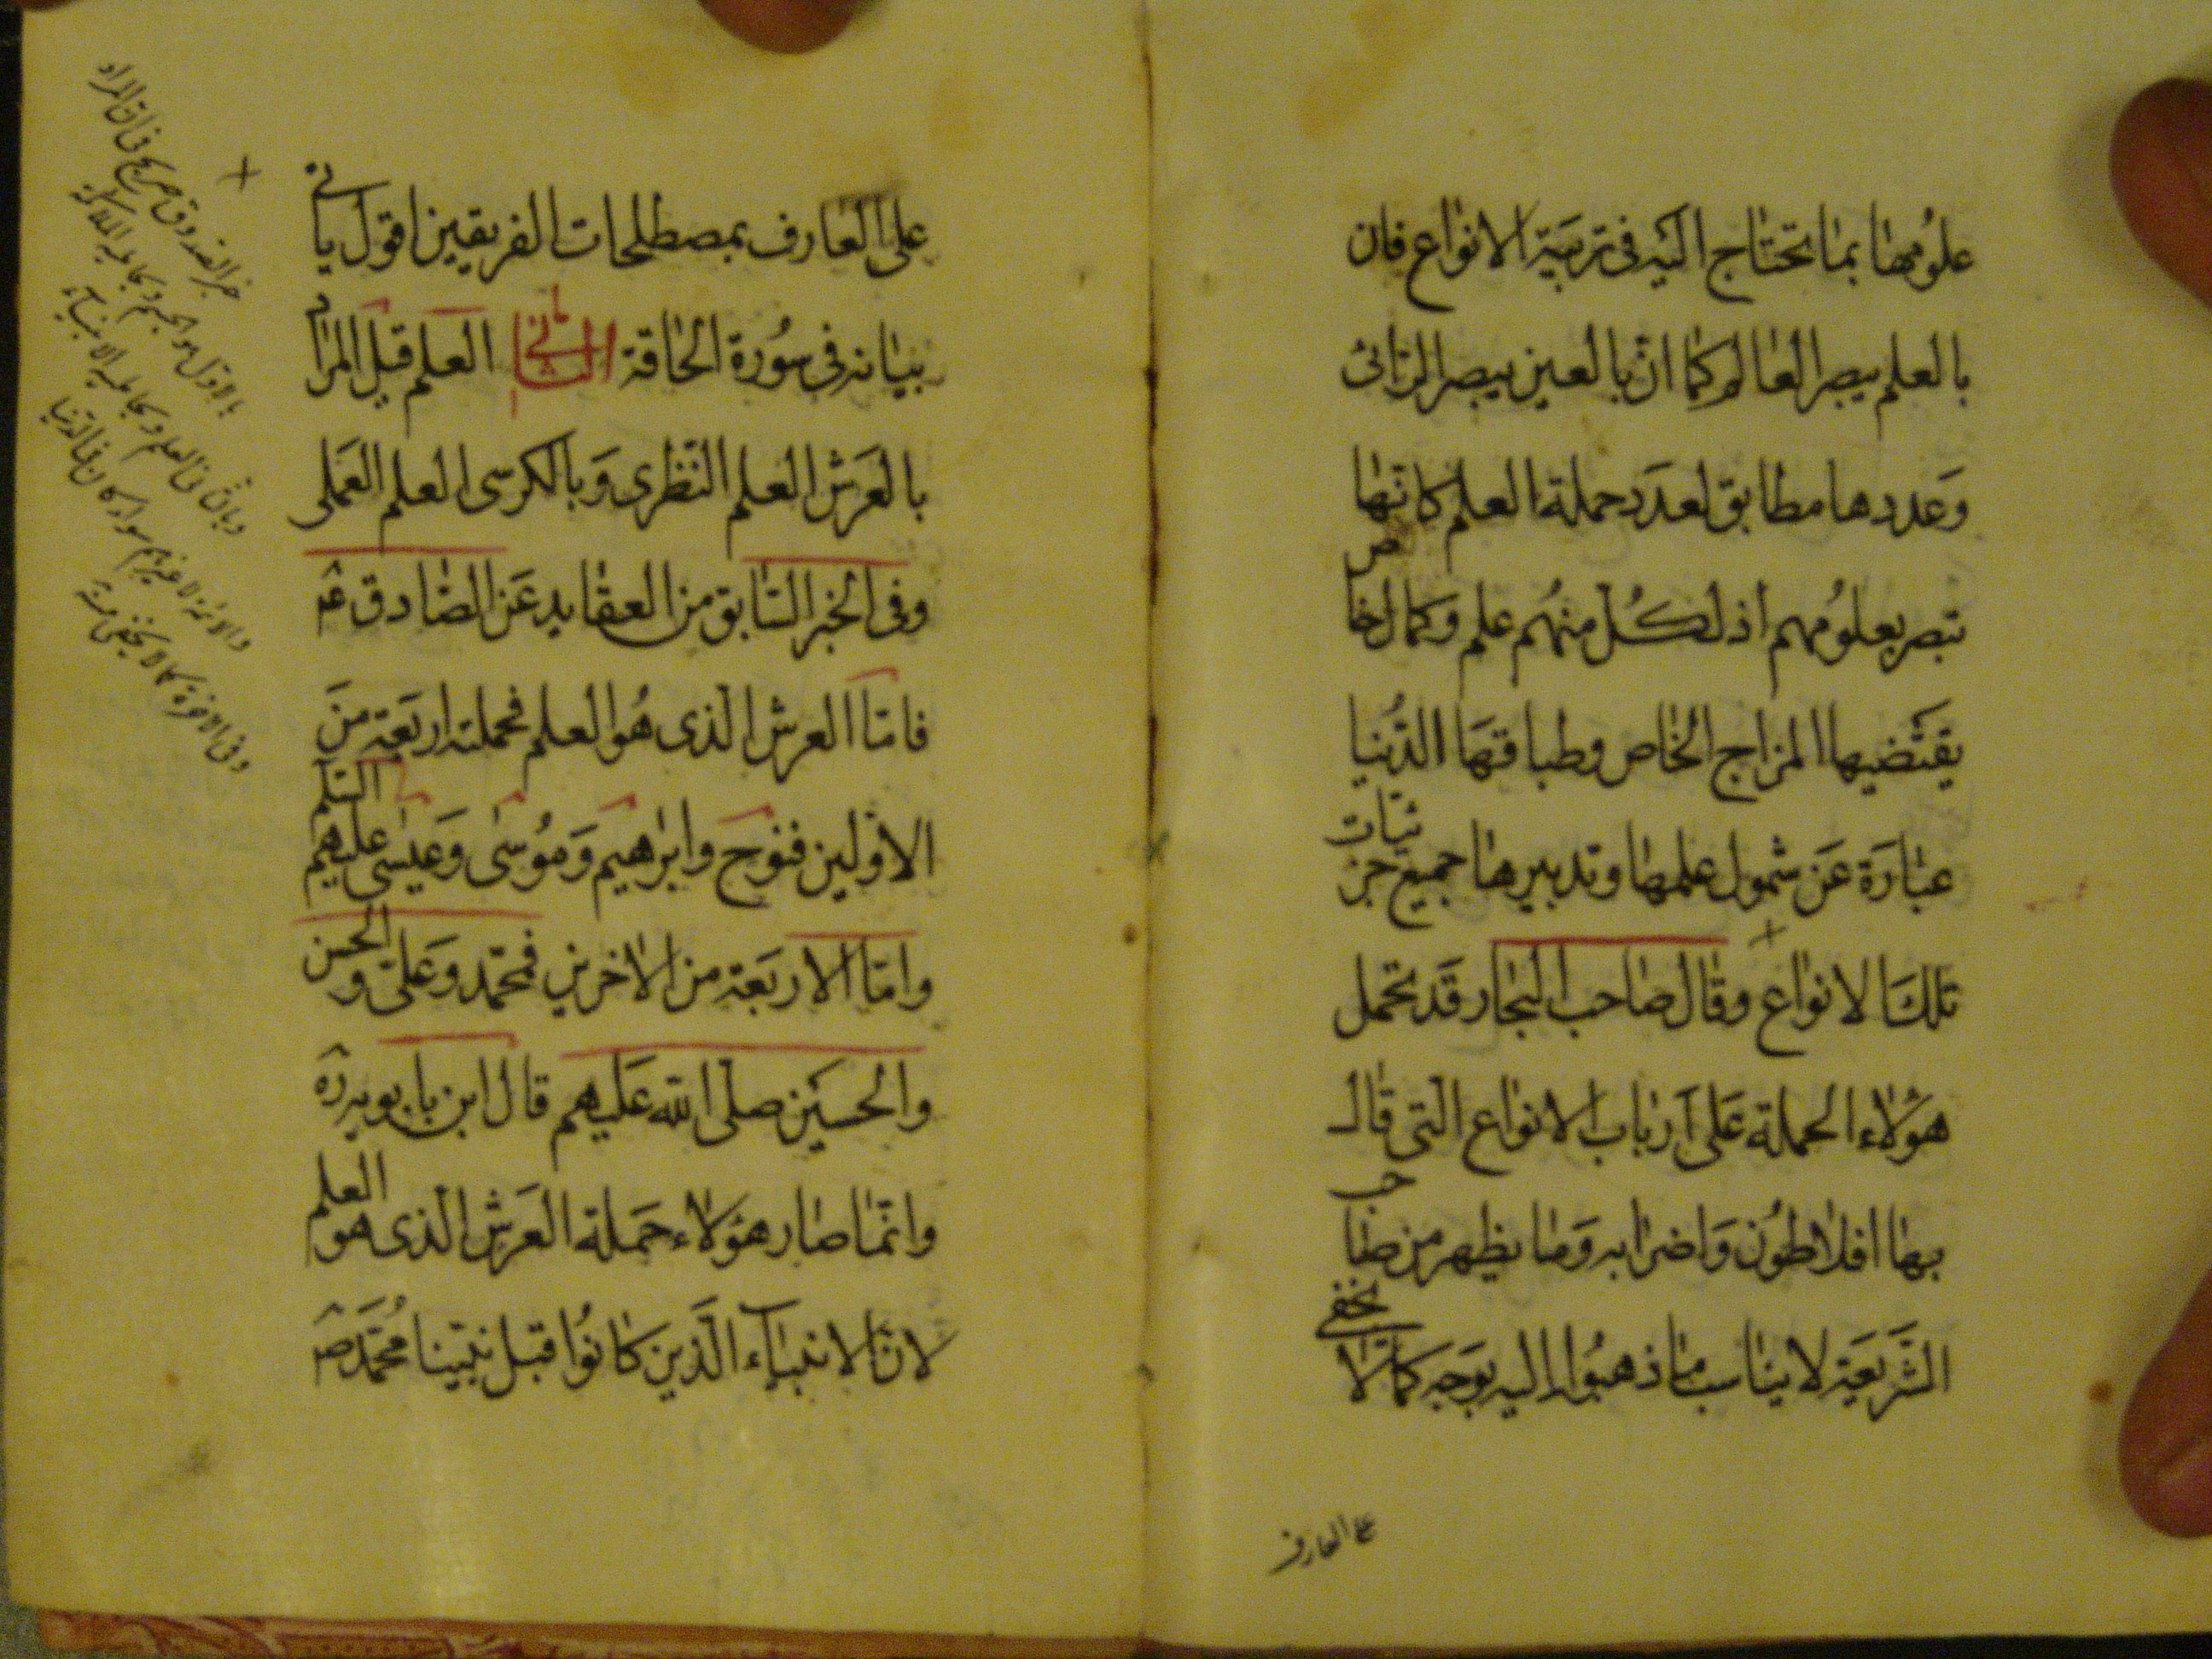 علومها بما تحتاج اليه فى تربية الانواع فان
بالعلم يبصر العالم كما ان بالعين يبصر الرائى
وعددها مطابق لعدد حملة العلم كانها
تبصر بعلومهم اذ لكل منهم علم وكمال خاص
يقتضيها المزاج الخاص وطباقها الدنيا
عبارة عن شمول علمها وتدبيرها جميع جزئيات
تلك الانواع وقال صاحب البحار قد تحمل
هؤلاء الحملة على ارباب الانواع التى قال
بها افلاطون واضرابه وما يظهر من صاحب
الشريعة لا يناسب ما ذهبوا اليه بوجه كما لا يخفى
على العارف
على العارف بمصطلحات الفريقين اقول ياتى
بيانه فى سورة الحاقة الثانى العلم قيل المراد
بالعرش العلم النظرى وبالكرسى العلم العملى
وفى الخبر السابق من العقايد عن الصادق ع
فاما العرش الذى هو العلم فحملته اربعة من
الاولين فنوح وابرهيم وموسى وعيسى عليهم السلم
واما الاربعة من الاخرين فمحمد وعلى والحسن
والحسين صلى الله عليهم قال ابن بابويه ره
وانما صار هؤلاء حملة العرش الذى هو العلم
لان الانبياء الذين كانوا قبل نبينا محمد ص
خبر الصدوق صريح فى ان المراد
بالاول هو الجسم وحامليه الملائكة
وبالثانى العلم وحامليه الانبياء
والائمة لا غيرهم سواء كان فى الدنيا
وفى الاخرة كما لا يخفى منه